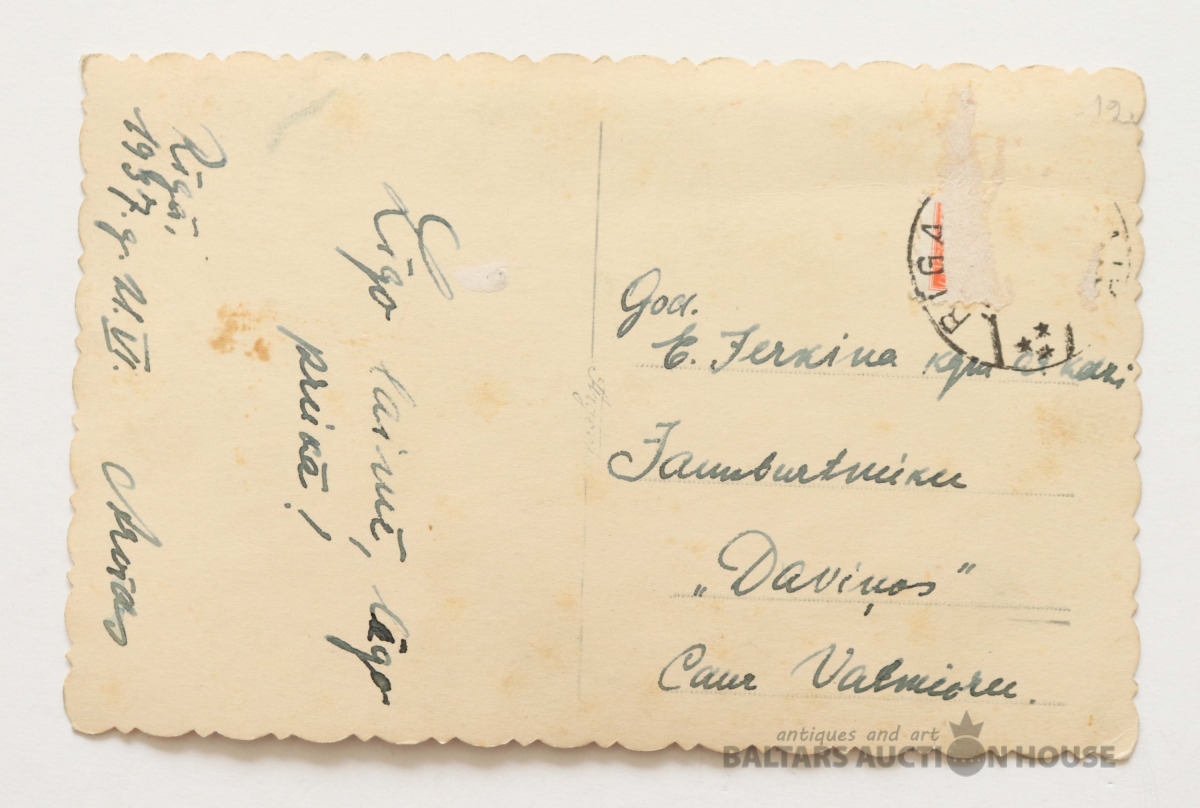 Rīgā,
1937. g. 21. VI.
Līgo laimē, līgo
priekā!
God.
E. Jerkina kgm
Jaunburtnieku
„Daviņos”
Caur Valmieru.
RIGA
12.
antiques and art
BALTARS AUCTION HOUSE